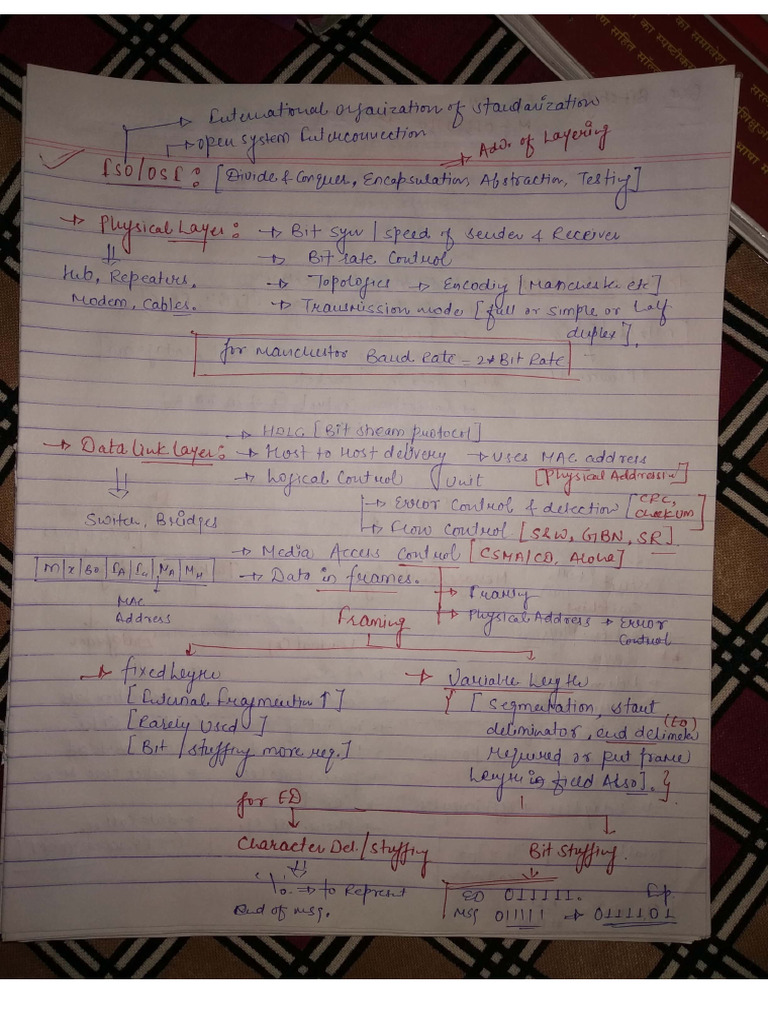 का समावेश
का स्पष्टीकरण
International organization of standarization
open system Interconnection
Adv. of Layering
ISO/OSI : [Divide & Conquer, Encapsulation, Abstraction, Testing]
Physical Layer : → Bit syn / speed of sender & Receiver
→ Bit rate Control
Hub, Repeaters, → Topologies → Encoding [Manchester etc]
Modem, Cables. → Transmission mode [full or simple or half
duplex].
for Manchestor Baud Rate = 2*Bit Rate
→ HDLC [Bit stream protocol]
→ Data link layer : → Host to Host delivery → Uses MAC address
→ Logical Control Unit [Physical Addressin]
→ Error Control & detection [CRC, CheckUM]
Switch, Bridges → Flow Control [S&W, GBN, SR].
→ Media Access Control [CSMA/CD, Aloha]
→ Data in frames. → Framing
MAC
Address → Physical Address → Error
Control
Framing
→ fixed length → Variable Length
[Internal Fragmention ↑] [Segmentation, start
[Rarely Used] deliminator, end delimeter (ED)
[Bit / stuffing more req.] required or put frame
length in field Also].
for ED
Character Del./stuffing Bit stuffing.
'\0' ⇒ to Represent
End of msg.
ED 011111.
MSG 01111 → 0111101